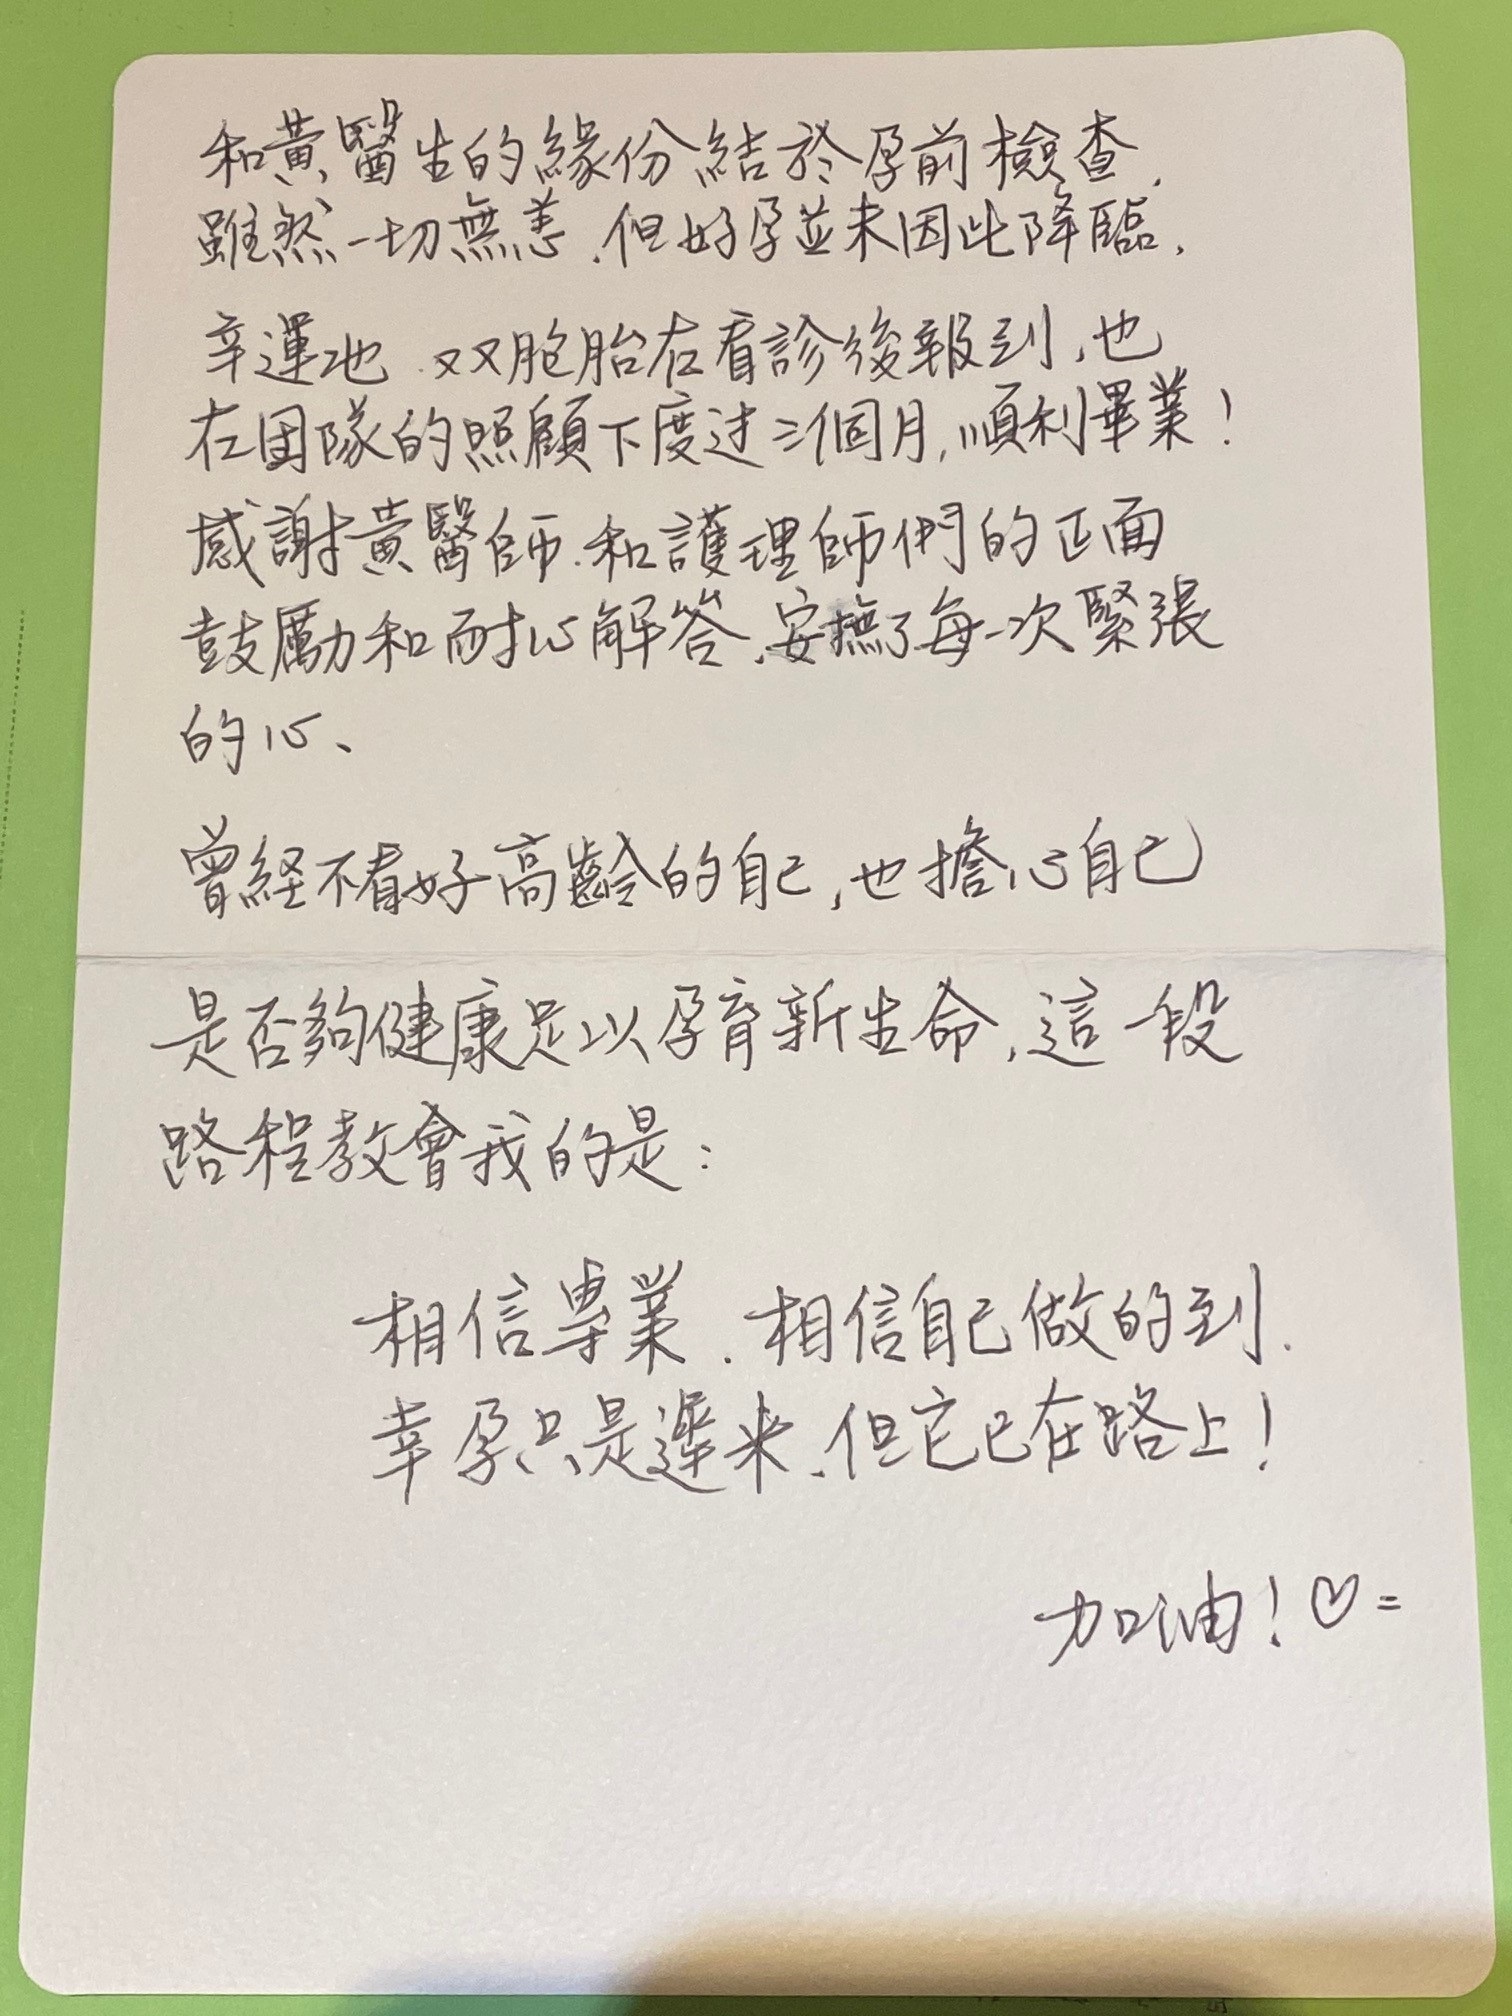 和黃醫生的緣份結於孕前檢查,
雖然一切無恙.但好孕並未因此降臨.
幸運地.双胞胎在看診後報到,也
在团隊的照顧下度过三個月,順利畢業!
感謝黃醫師.和護理師們的正面
鼓勵和耐心解答.安撫了每一次緊張
的心、
曾経不看好高齡的自己,也擔心自己
是否夠健康足以孕育新生命,這一段
路程教會我的是:
相信專業.相信自己做的到.
幸孕只是遲来.但它已在路上!
加油!♡=